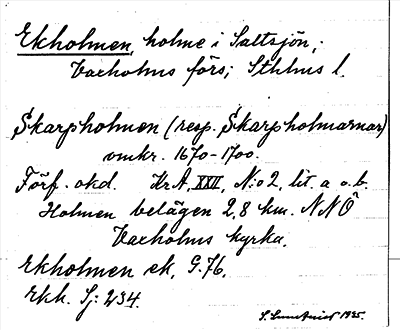 Ekholmen, holme i Saltsjön;
Vaxholms förs; Sthlms l.
Skarpholmen (resp. Skarpholmarnas)
omkr. 1670-1700.
Förf. okd. Kr.A. XXII, N:o 2, lit. a o. b.
Holmen belägen 2,8 km. NNÖ
Vaxholms kyrka.
Ekholmen ek. G. 76.
Ekh. Sj: 234.
S. 1935.